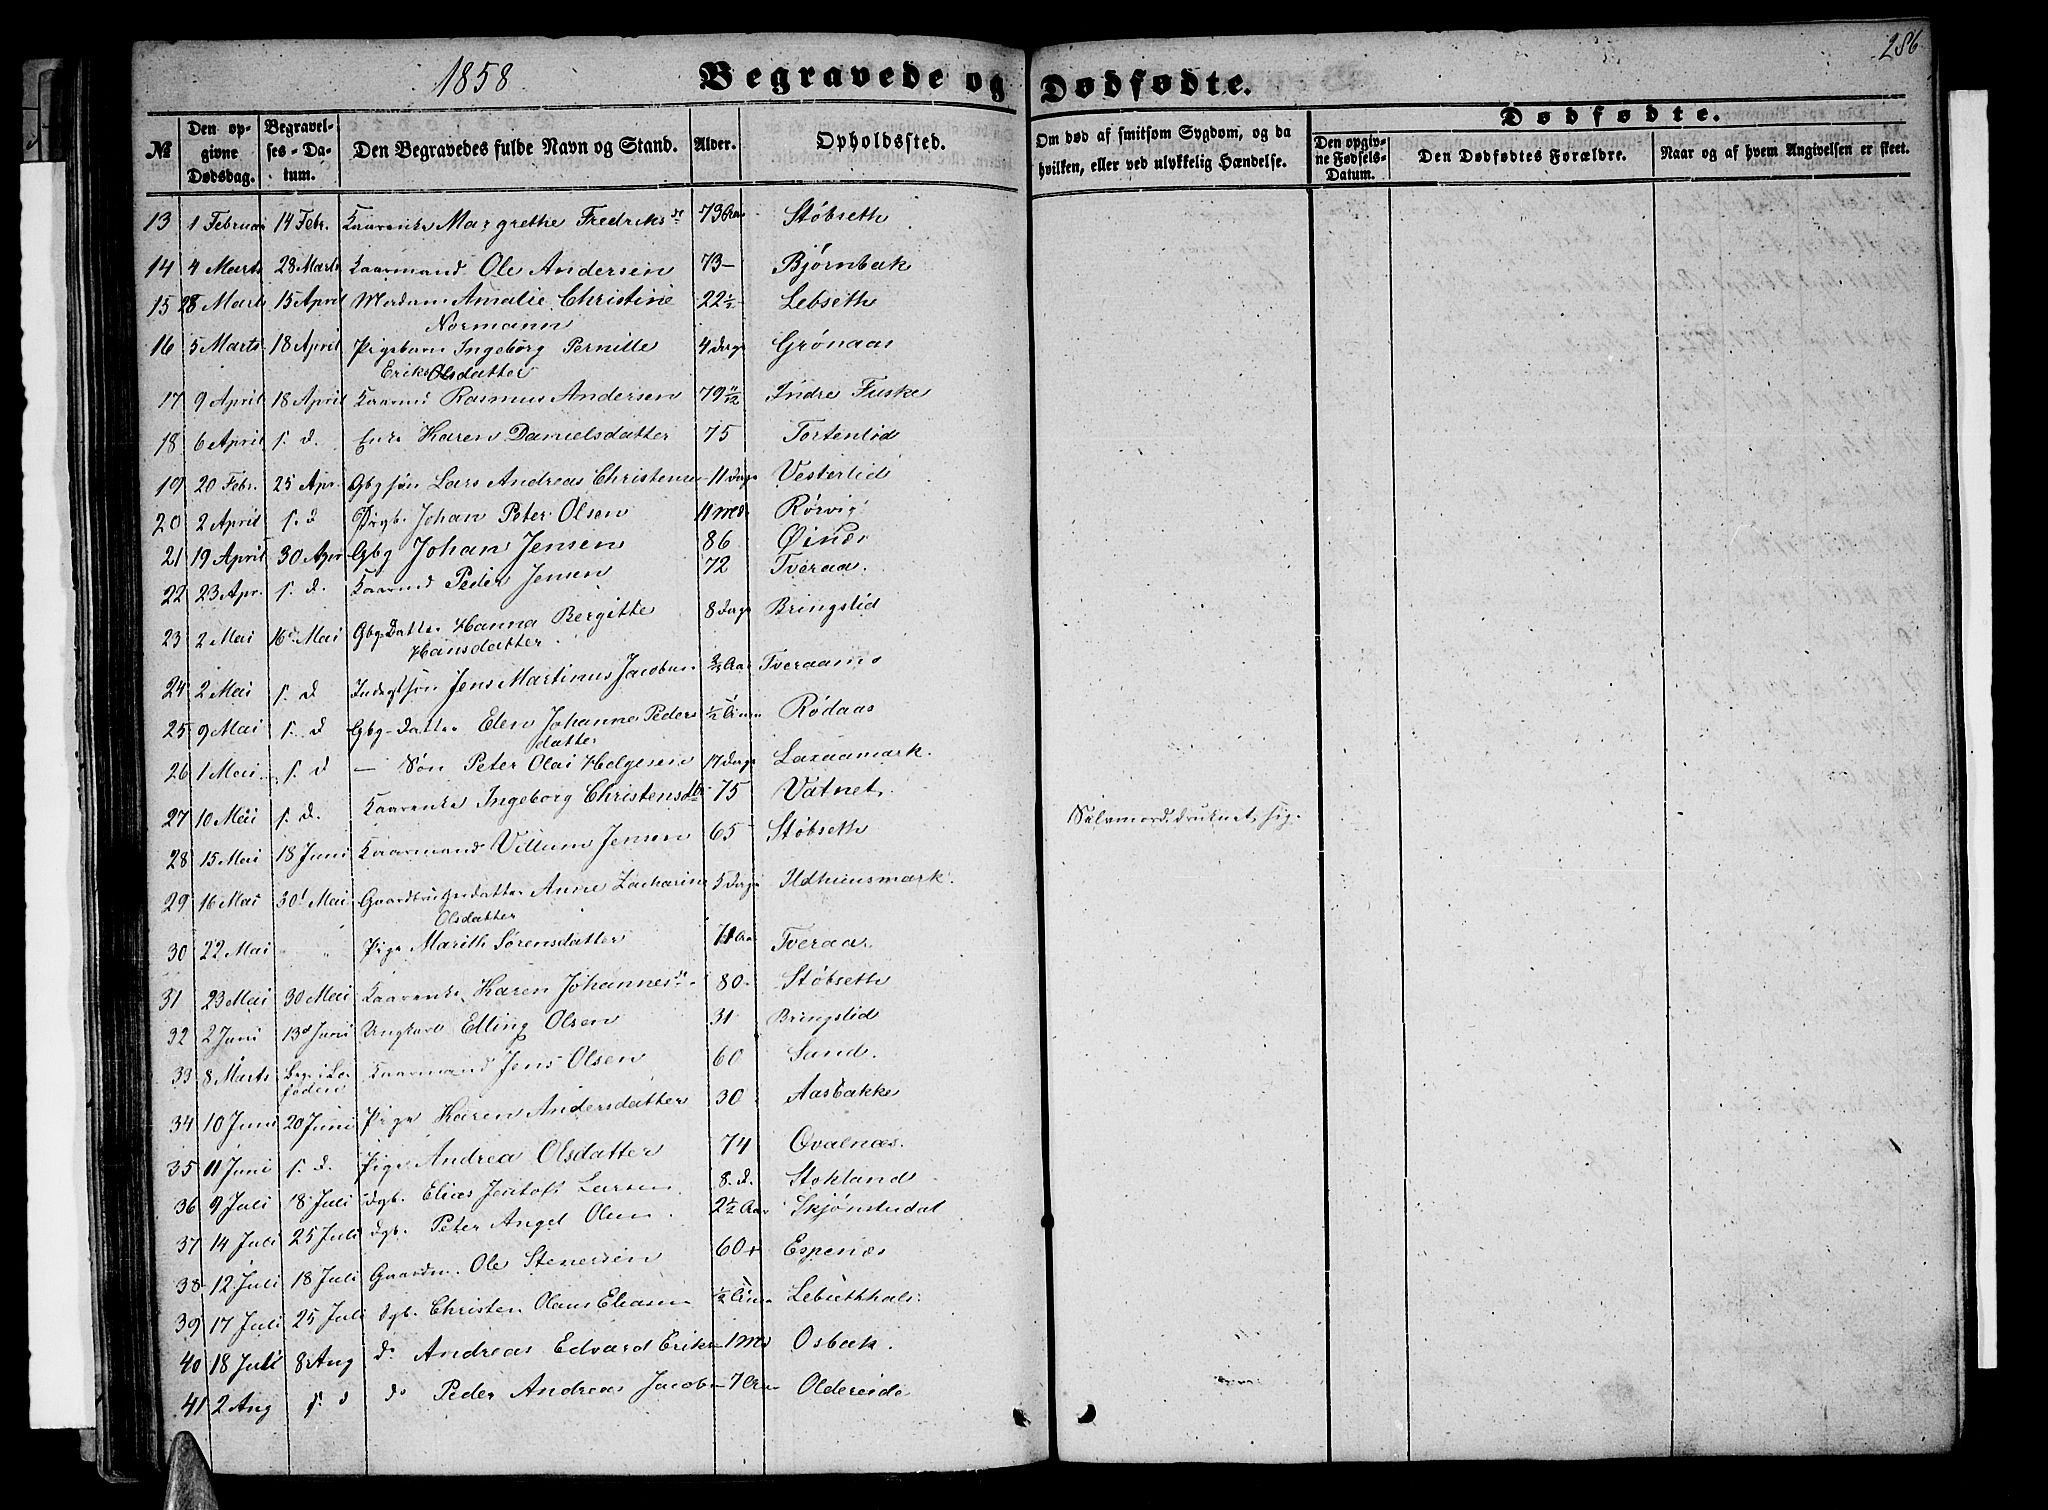 1858 Begravede og Dødfødte. 286
№ Den opgivne Dødsdag. Begravelses-Datum. Den Begravedes fulde Navn og Stand. Alder. Opholdssted. Om død af smitsom Sygdom, og da hvilken, eller ved ulykkelig Hændelse. Dødfødte. Den opgivne Fødsels-Datum. Den Dødfødtes Forældre. Naar og af hvem Angivelsen er skeet.
13 1 Februar 14 Febr. Kaarenke Margrethe Fredriksd 73 Aar Støbseth
14 4 Marts 28 Marts Kaarmand Ole Andersen 73 — Bjørnbak
15 28 Marts 15 April Madam Amalie Christine 22½ Lebseth
Normann
16 5 Marts 18 April Pigebarn Ingeborg Pernille 4 Dage Grønaas
Eriks Olsdatter
17 9 April 18 April Kaarmd Rasmus Andersen 79 11/12 Indre Fuske
18 6 April s. d. Enke Karen Danielsdatter 75 Tortenlid
19 20 Febr. 25 Apr. Gbg søn Lars Andreas Christens 11 Dage Vesterlid
20 2 April s. d Drgb. Johan Peter Olsen 11 Md Rørvig
21 19 April 30 Apr Gbg Johan Jensen 86 Øines
22 23 Apr. s. d. Kaarmd Peder Jensen 72 Tveraa.
23 2 Mai 16 Mai Gbg Datter Hanna Bergitte 8 Dage Bringslid
Hansdatter.
24 2 Mai s. d Indstsøn Jens Martinus Jacobsen ¾ Aar Tveraamo
25 9 Mai s. d Gbg-Datter Elen Johanne Peders ½ Time Rødaas
datter
26 1 Mai s. d — Søn Peter Olai Helgesen 17 Dage Laxaamark.
27 10 Mai s. d. Kaarenke Ingeborg Christensdtr 75 Vatnet.
28 15 Mai 18 Juni Kaarmand Villum Jensen 65 Støbseth Selvmord, druknet sig.
29 16 Mai 30 Mai Gaardbrugerdatter Anne Zacharine 5 Dage Ildhusmark.
Olsdatter
30 22 Mai " Pige Marith Sørensdatter 71 Aar Tveraa
31 23 Mai 30 Mai Kaarenke Karen Johannesd 80 Støbseth
32 2 Juni 13 Juni Ungkarl Elling Olsen 31 Bringslid
33 8 Marts Begr i Lofoden Kaarmand Jens Olsen 60 Sand.
34 10 Juni 20 Juni Pige Karen Andersdatter 30 Aasbakke
35 11 Juni s. d. Pige Andrea Olsdatter 74 Qvalnæs.
36 9 Juli 18 Juli Dgb. Elias Jentoft Larsen 8. d. Stokland
37 14 Juli 25 Juli Dgb. Peter Angel Olsen 2½ Aar Skjønstudal
38 12 Juli 18 Juli Gaardm. Ole Stenersen 60 Espenæs
39 17 Juli 25 Juli Dgb. Christen Olaus Eliasen ½ Time Lebsethhals
40 18 Juli 8 Aug do Andreas Edvard Eriks 1 Md Osbak.
41 2 Aug s. d do Peder Andreas Jacobs 7 Aar Oldereide